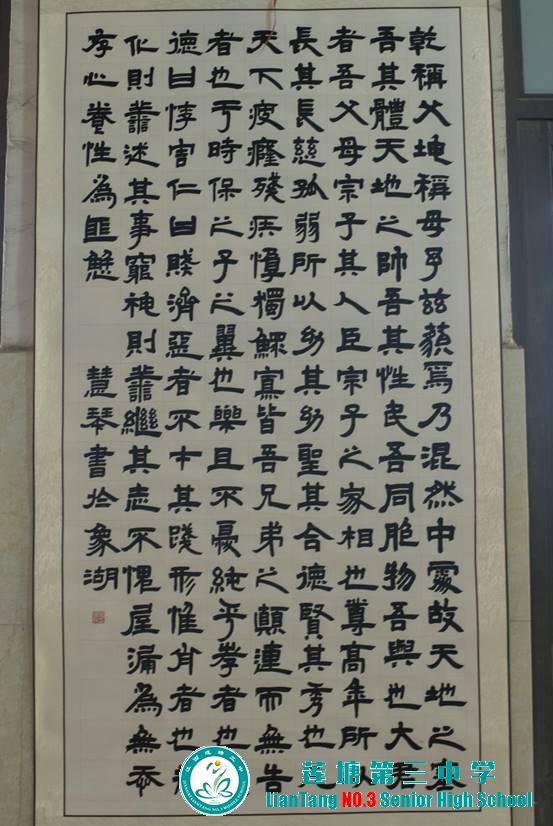 乾稱父坤稱母予茲藐焉乃混然中處故天地之塞
吾其體天地之帥吾其性民吾同胞物吾與也大君
者吾父母宗子其大臣宗子之家相也尊高年所
長其長慈孤弱所以幼其幼聖其合德賢其秀也凡
天下疲癃殘疾惸獨鰥寡皆吾兄弟之顛連而無告
者也于時保之子之翼也樂且不憂純乎孝者也
德曰悖害仁曰賊濟惡者不才其踐形惟肖者也知
化則善述其事窮神則善繼其志不愧屋漏為無忝
存心養性為匪懈 慧琴書於象湖
莲塘第三中学
LianTang NO.3 Senior High School